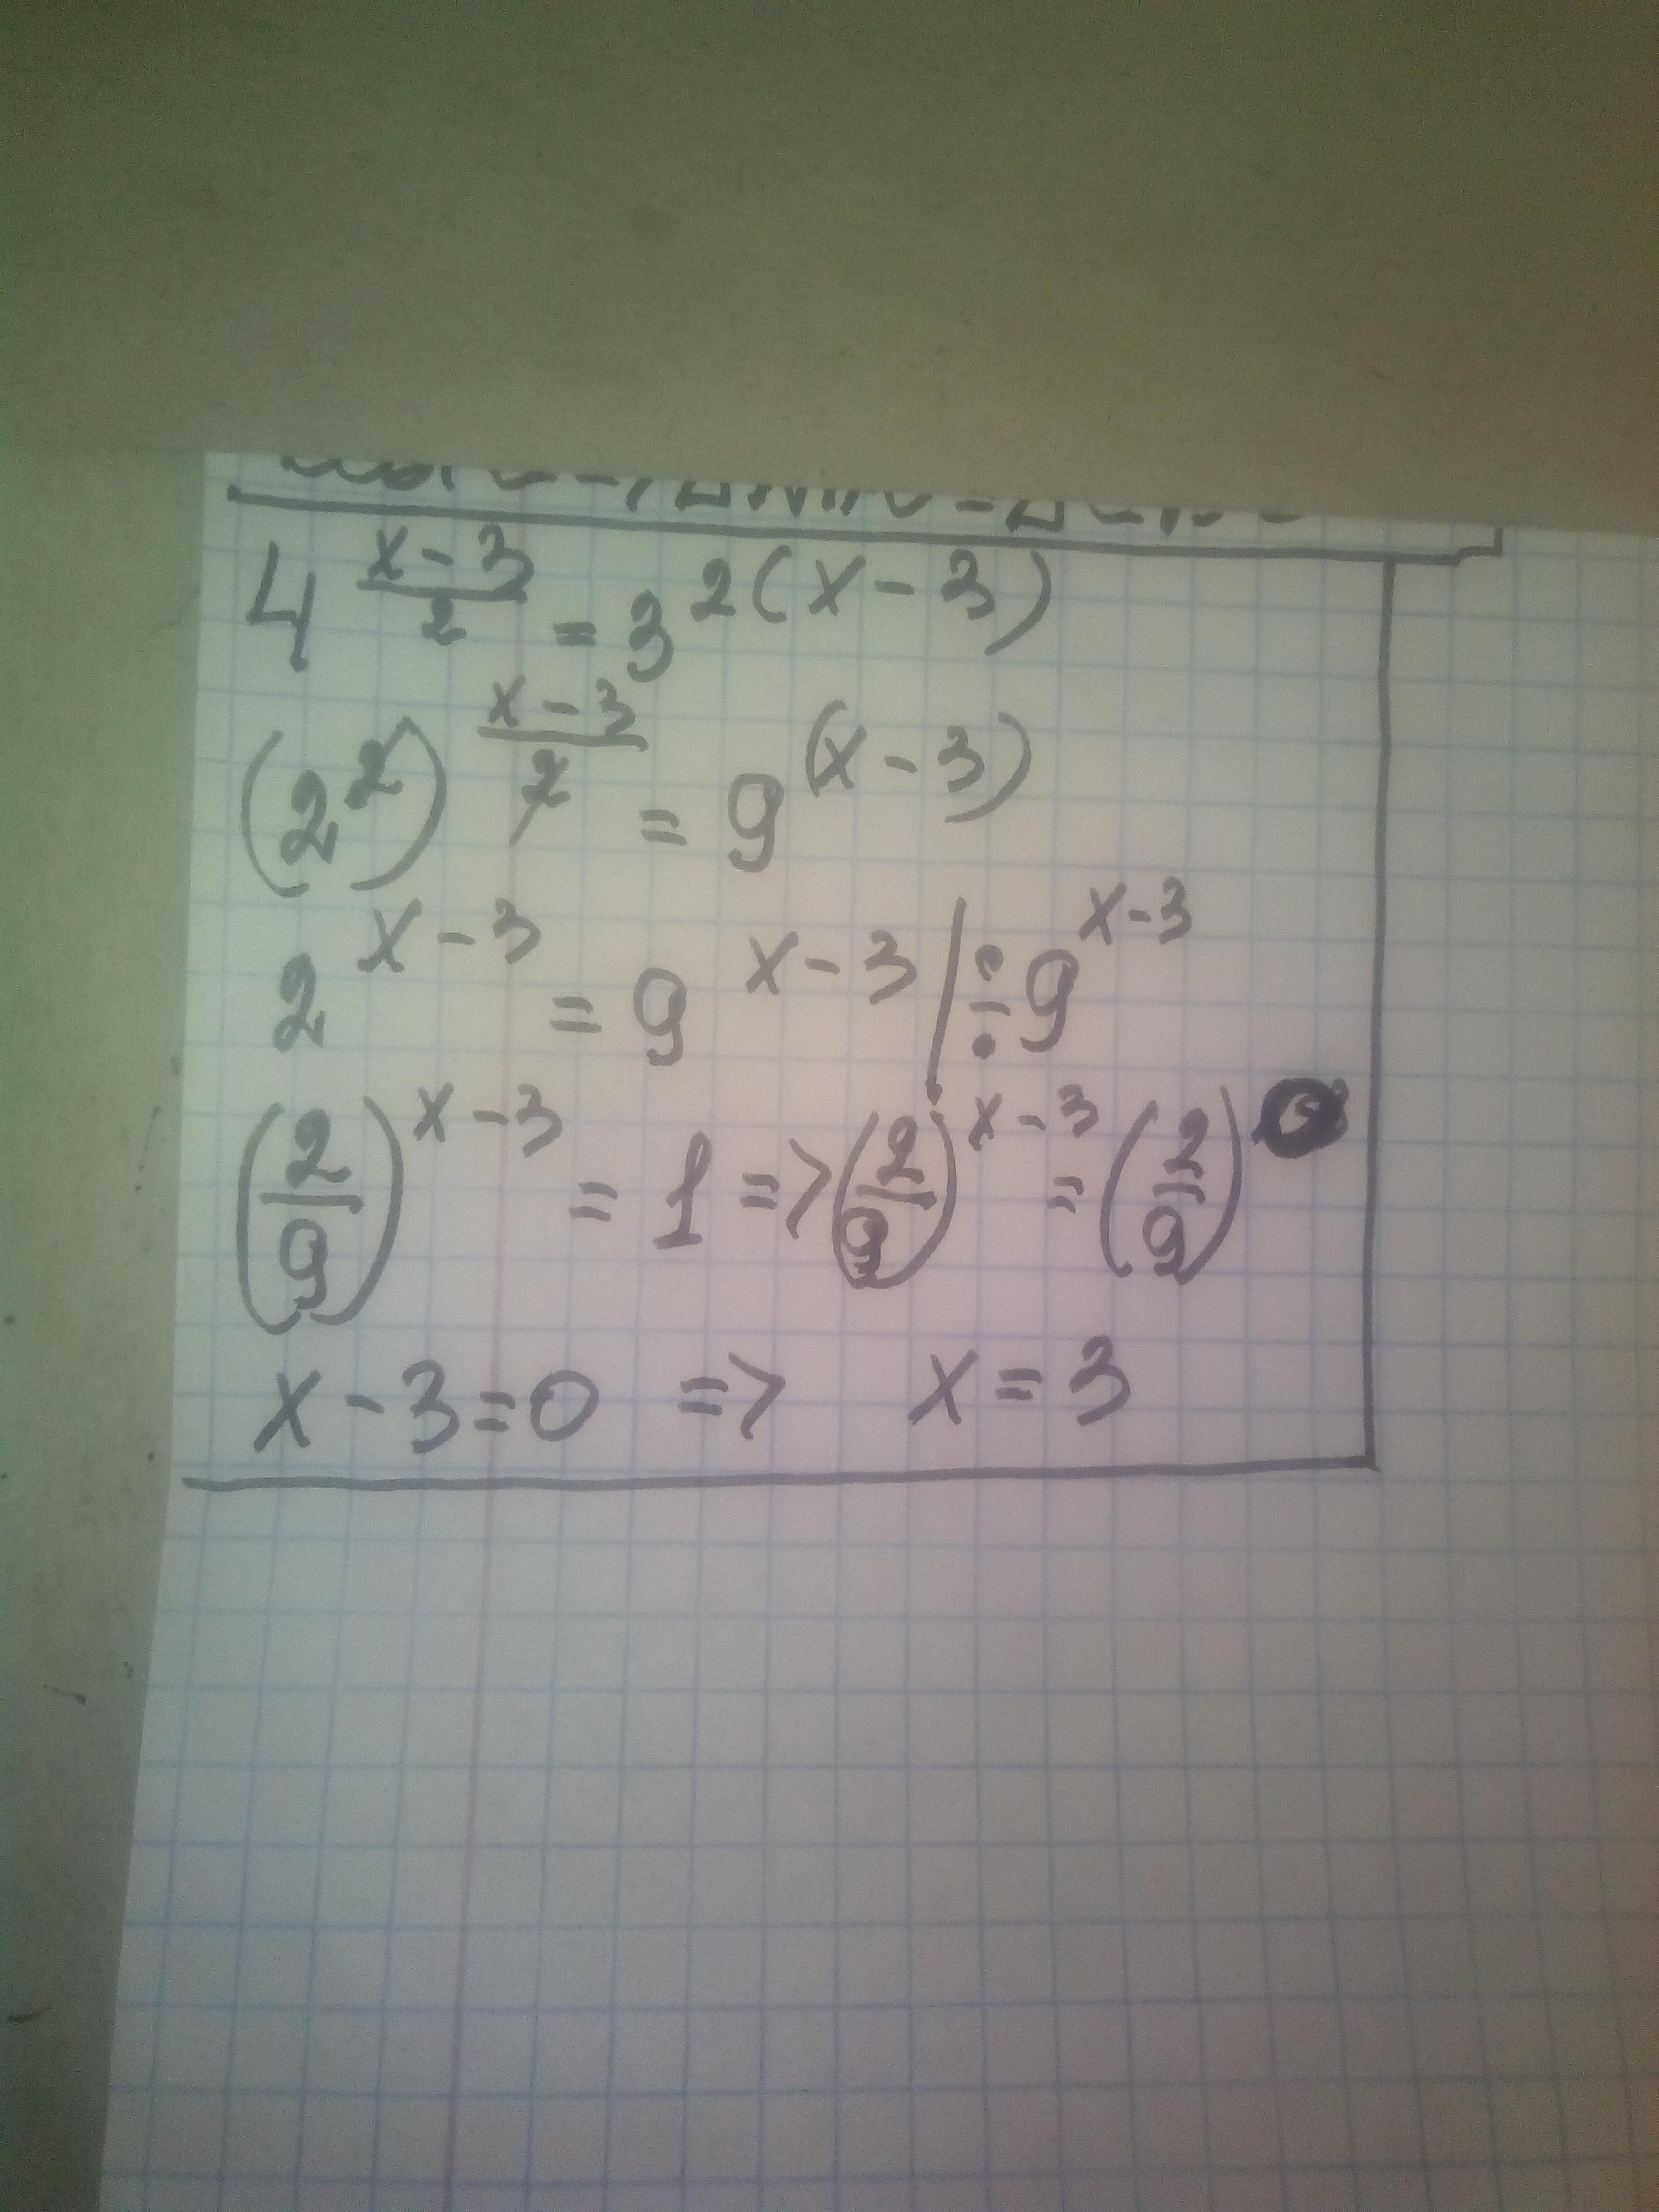 4^{\frac{x-3}{2}} = 3^{2(x-3)}
(2^2)^{\frac{x-3}{2}} = 9^{(x-3)}
2^{x-3} = 9^{x-3} | ÷ 9^{x-3}
(\frac{2}{9})^{x-3} = 1 => (\frac{2}{9})^{x-3} = (\frac{2}{9})
x-3=0 => x=3